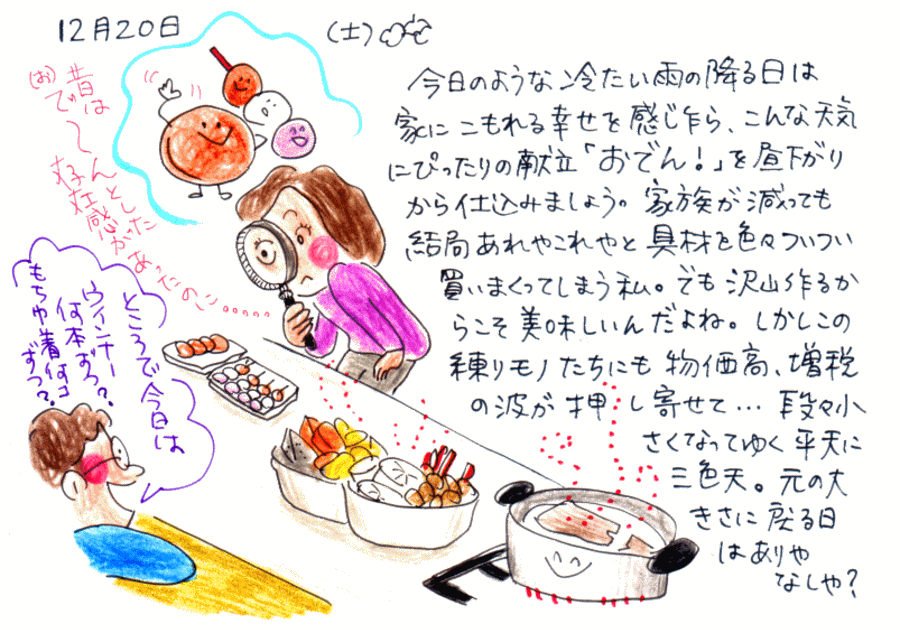 12月20日
(土)
今日のような冷たい雨の降る日は
家にこもれる幸せを感じ乍ら、こんな天気
にぴったりの献立「おでん！」を昼下がり
から仕込みましょう。家族が減っても
結局あれやこれやと具材を色々ついつい
買いまくってしまう私。でも沢山作るか
らこそ美味しいんだよね。しかしこの
練りモノたちにも物価高、増税
の波が押し寄せて…段々小
さくなってゆく平天に
三色天。元の大
きさに戻る日
はありや
なしや？
昔は
(お)で〜んとした
存在感が
あったのに……
ところで今日は
ウインナー
何本ずつ？
もちゅ着何コ
ずつ？